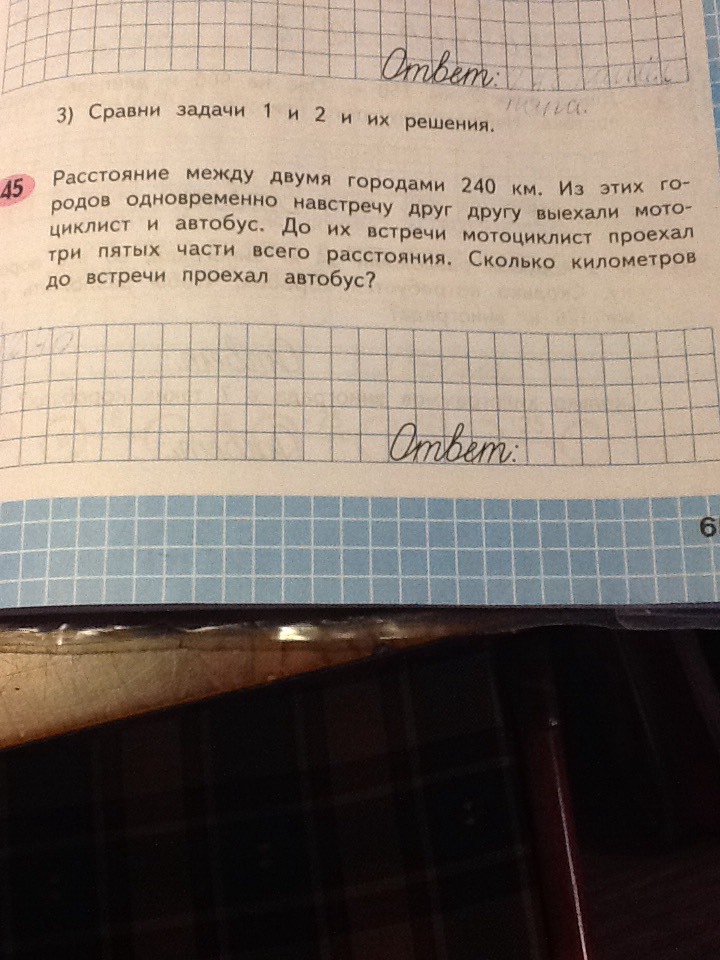 Ответ:
3) Сравни задачи 1 и 2 и их решения.
45 Расстояние между двумя городами 240 км. Из этих го-
родов одновременно навстречу друг другу выехали мото-
циклист и автобус. До их встречи мотоциклист проехал
три пятых части всего расстояния. Сколько километров
до встречи проехал автобус?
Ответ:
6